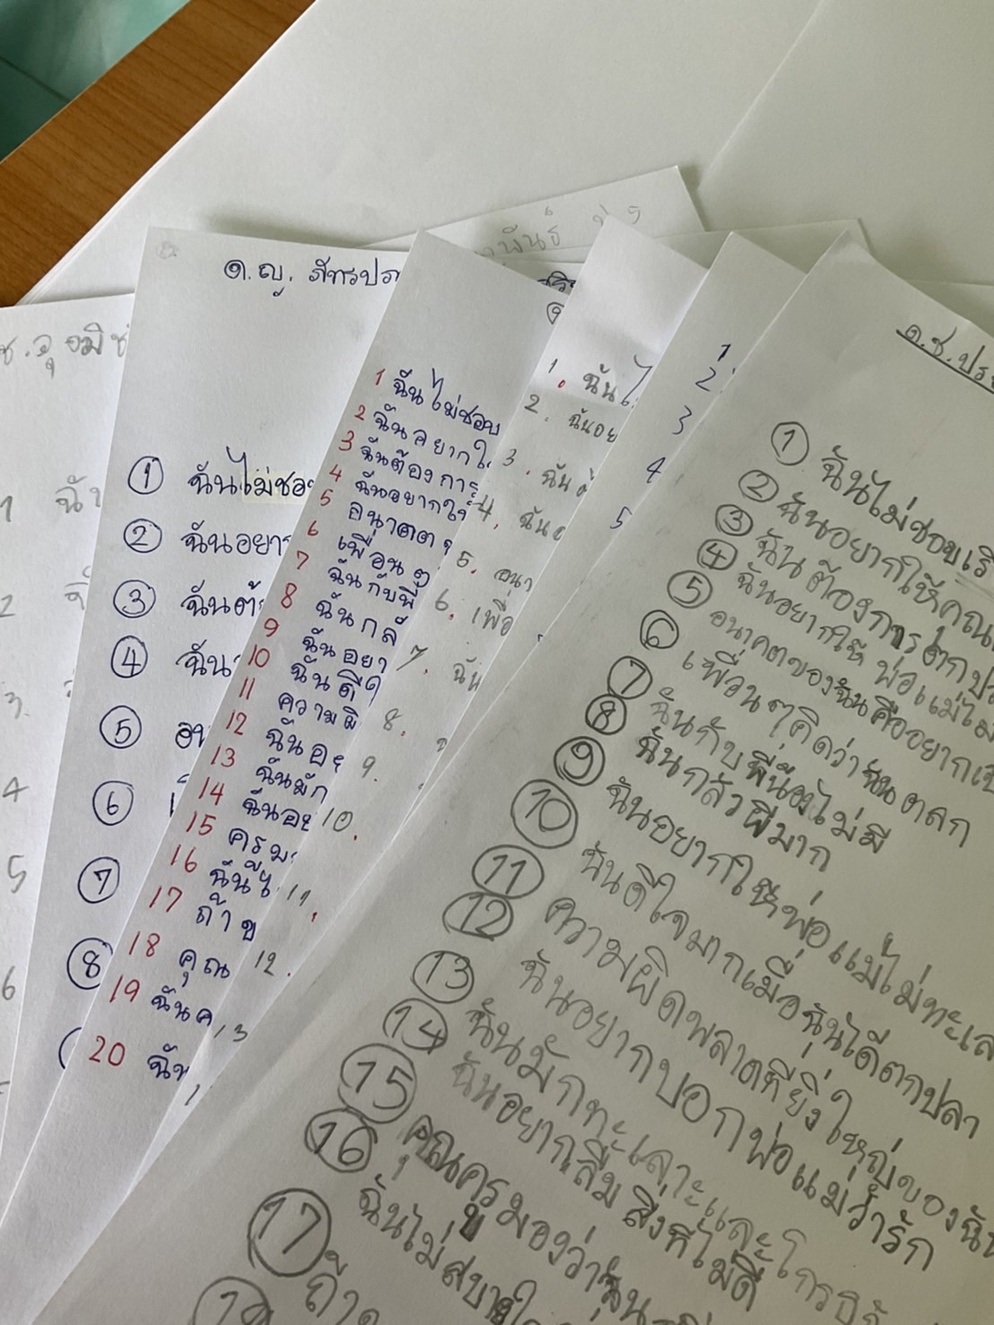 พันธ์ ป 5
ด.ญ. ภัทรปภ
ด.ช.ปร
1 ฉั
2
4
5
6
① ฉันไม่ชอ
② ฉันอยา
③ ฉันต้
④ ฉัน
⑤ อน
⑥
⑦
⑧
1 ฉันไม่ชอบ
2 ฉันอยากใ
3 ฉันต้องการ
4 ฉันอยากให้
5 อนาคต
6 เพื่อนๆ
7 ฉันกับพี่
8 ฉันกลั
9 ฉันอยา
10 ฉันดีใ
11 ความผิ
12 ฉันอย
13 ฉันมัก
14 ฉันอย
15 ครูม
16 ฉันไ
17 ถ้าข
18 คุณ
19 ฉันค
20 ฉัน
1. ฉันไ
2. ฉันอย
3. ฉันต้
4. ฉันอ
5. อนา
6. เพื่อ
7. ฉัน
8.
9.
10.
11.
12.
13
1
2
3
4
5
① ฉันไม่ชอบเรี
② ฉันอยากให้คุณ
③ ฉันต้องการตกป
④ ฉันอยากให้ พ่อแม่ไม่
⑤ อนาคตของฉันคืออยากเป็
⑥ เพื่อนๆคิดว่าฉันตลก
⑦ ฉันกับพี่น้องไม่มี
⑧ ฉันกลัวผีมาก
⑨ ฉันอยากให้พ่อแม่ไม่ทะเล
⑩ ฉันดีใจมากเมื่อฉันได้ตกปลา
⑪ ความผิดพลาดที่ยิ่งใหญ่ของฉัน
⑫ ฉันอยากบอกพ่อแม่ว่ารัก
⑬ ฉันมักทะเลาะและโกรธ
⑭ ฉันอยากลืมสิ่งที่ไม่ดี
⑮ คุณครูมองว่าฉัน
⑯ ฉันไม่สบายใ
⑰ ถ้า